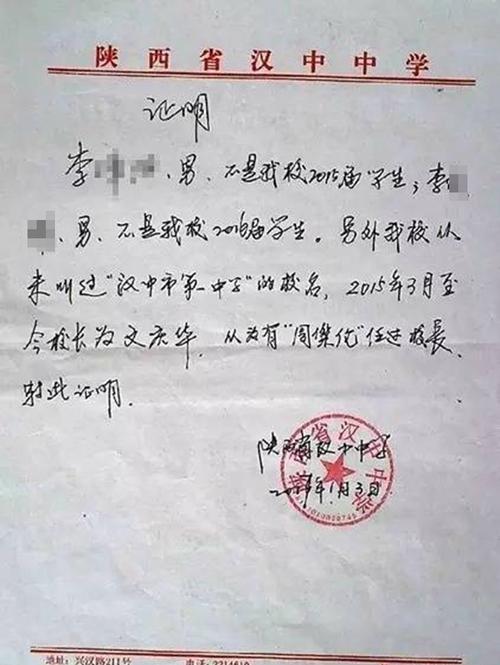 陕西省汉中中学
证明
李 、男、不是我校2015届学生；李
、男、不是我校2016届学生。另外我校从
未叫过“汉中市第一中学”的校名，2015年3月至
今校长为文庆华，从未有“周杰伦”任过校长，
特此证明.
陕西省汉中中学
年1月3日
地址：兴汉路211号 电话：2214610